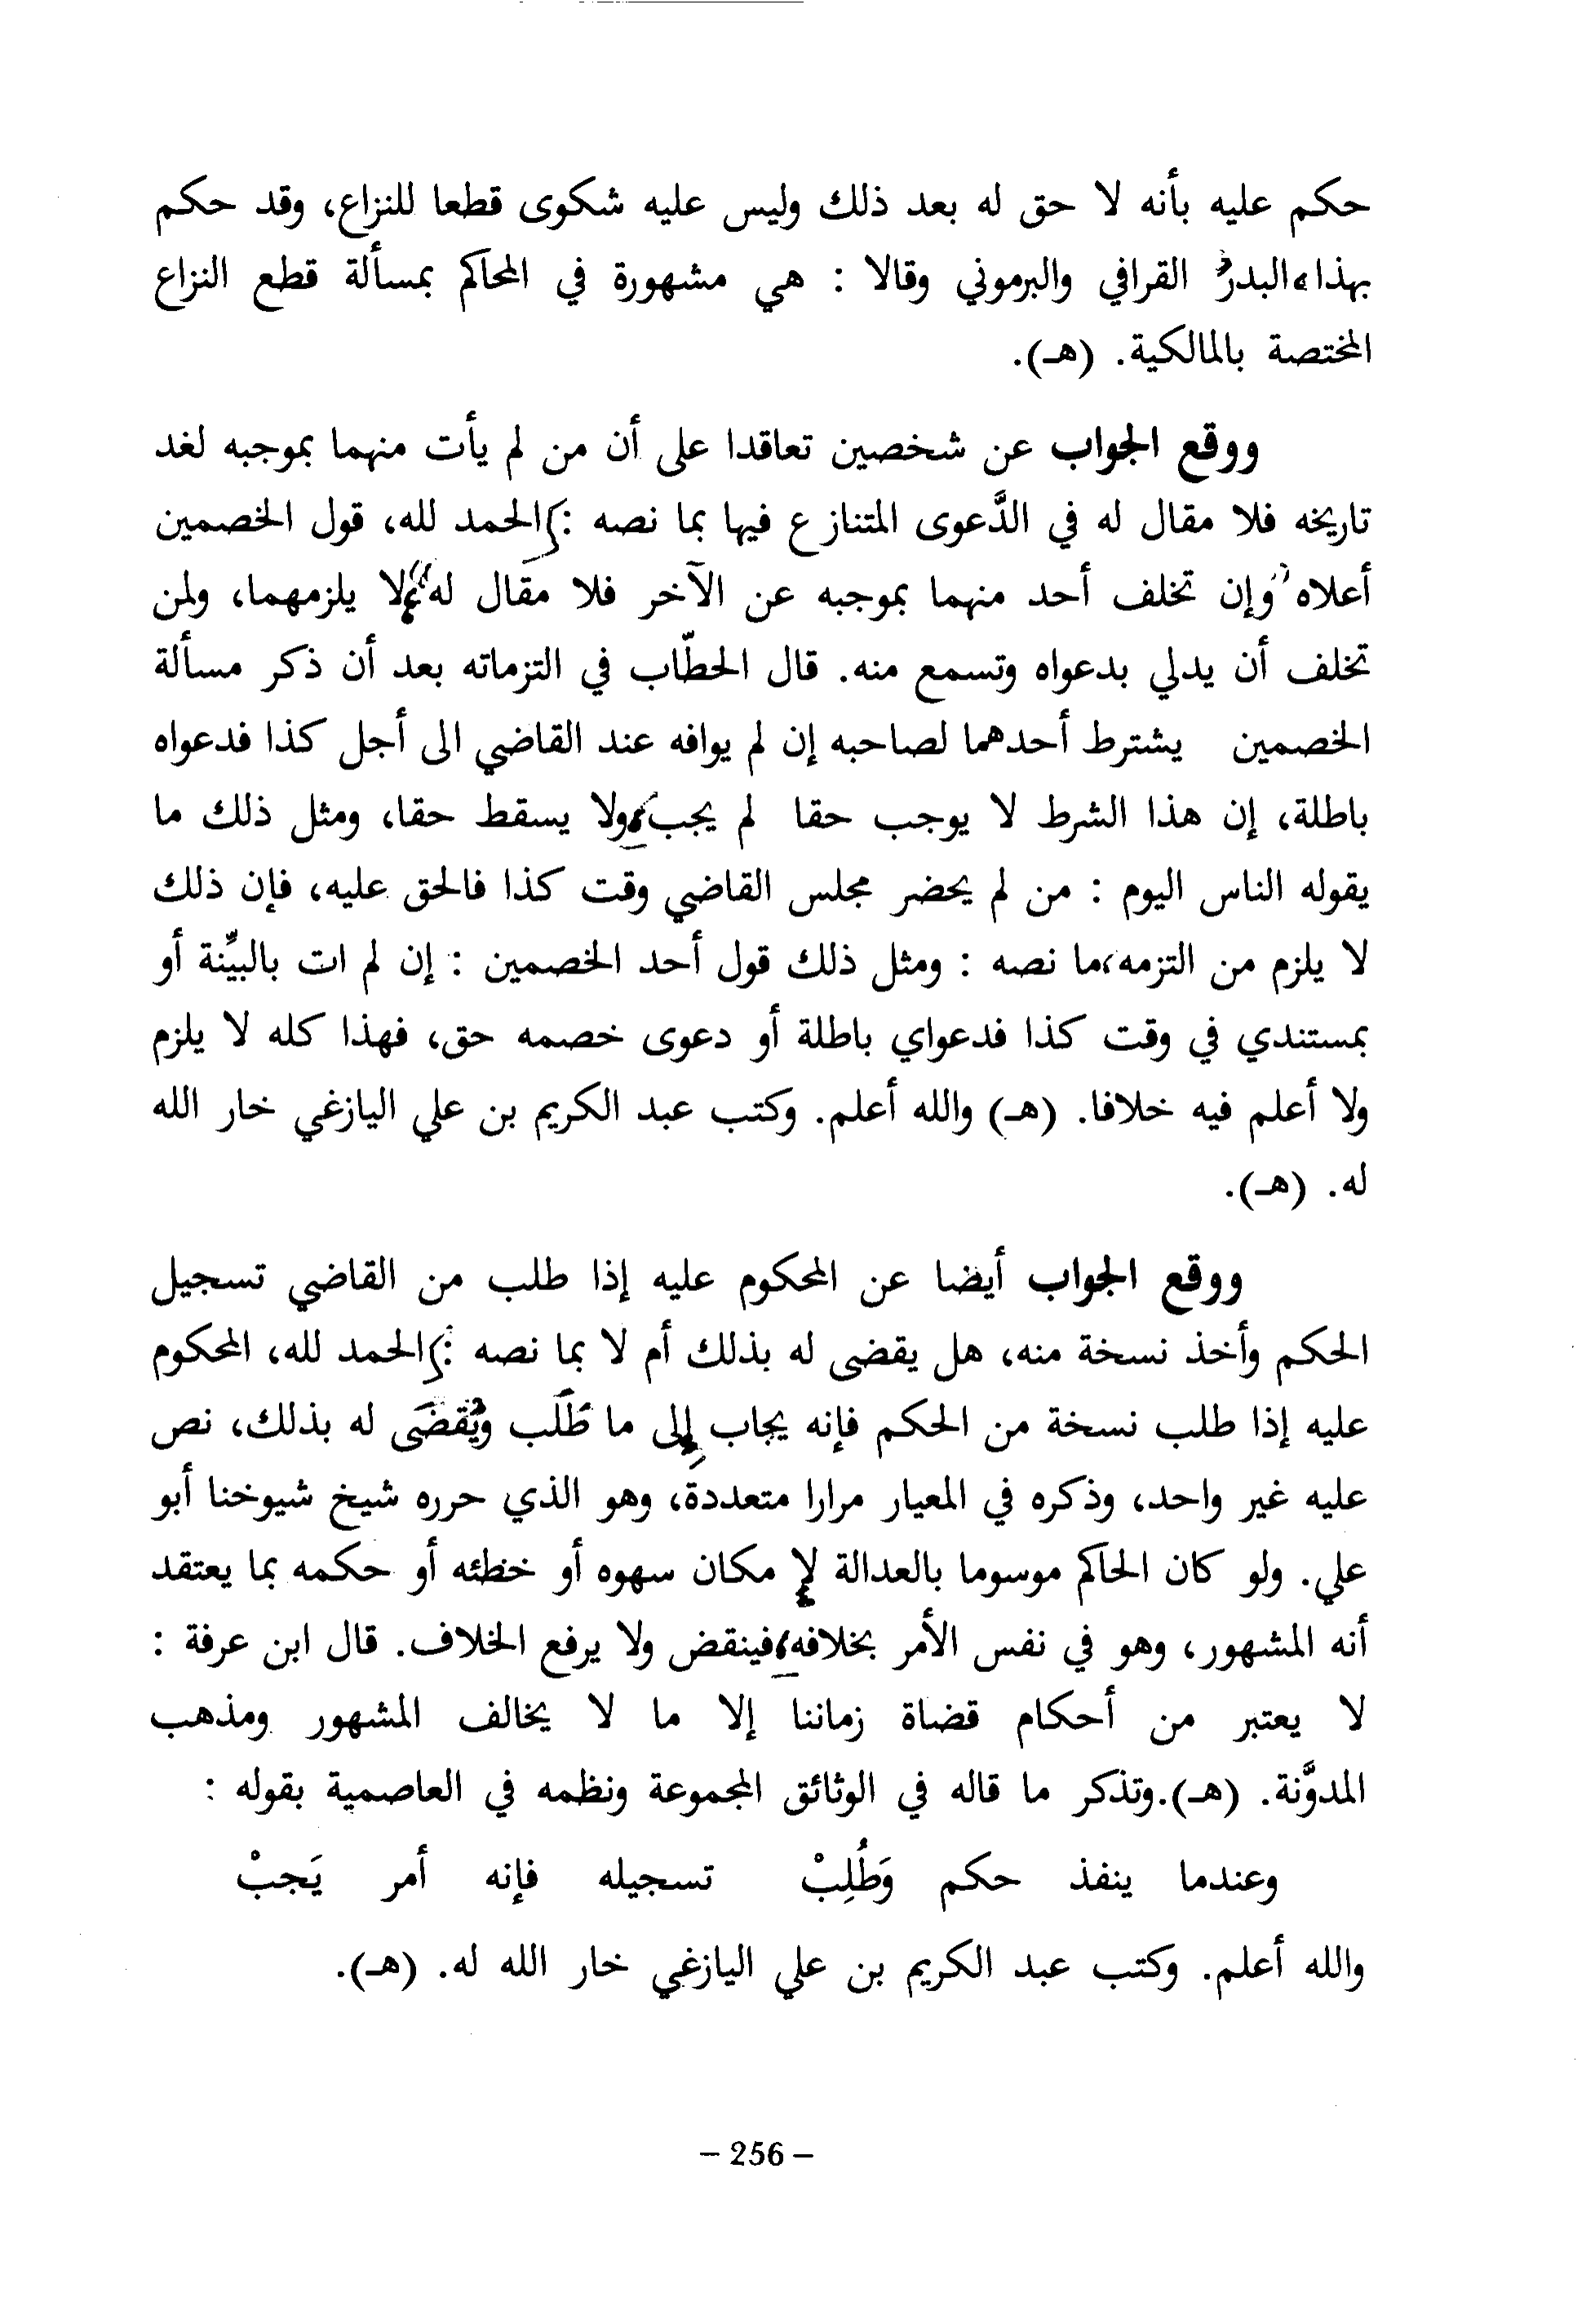 حكم عليه بأنه لا حق له بعد ذلك وليس عليه شكوى قطعا للنزاع، وقد حكم
بهذا، البدرُ القرافي والبرموني وقالا : هي مشهورة في المحاكم بمسألة قطع النزاع
المختصة بالمالكية. (هـ).
ووقع الجواب عن شخصين تعاقدا على أن من لم يأت منهما بموجبه لغد
تاريخه فلا مقال له في الدَّعوى المتنازع فيها بما نصه : الحمد لله، قول الخصمين
أعلاه "وإن تخلف أحد منهما بموجبه عن الآخر فلا مقال له" لا يلزمهما، ولمن
تخلف أن يدلي بدعواه وتسمع منه. قال الحطّاب في التزماته بعد أن ذكر مسألة
الخصمين يشترط أحدهما لصاحبه إن لم يوافه عند القاضي الى أجل كذا فدعواه
باطلة، إن هذا الشرط لا يوجب حقا لم يجب، ولا يسقط حقا، ومثل ذلك ما
يقوله الناس اليوم : من لم يحضر مجلس القاضي وقت كذا فالحق عليه، فإن ذلك
لا يلزم من التزمه، ما نصه : ومثل ذلك قول أحد الخصمين : إن لم ات بالبيِّنة أو
بمستندي في وقت كذا فدعواي باطلة أو دعوى خصمه حق، فهذا كله لا يلزم
ولا أعلم فيه خلافا. (هـ) والله أعلم. وكتب عبد الكريم بن علي اليازغي خار الله
له. (هـ).
ووقع الجواب أيضا عن المحكوم عليه إذا طلب من القاضي تسجيل
الحكم وأخذ نسخة منه، هل يقضى له بذلك أم لا بما نصه : الحمد لله، المحكوم
عليه إذا طلب نسخة من الحكم فإنه يجاب إلى ما طَلَب ويُقضَى له بذلك، نص
عليه غير واحد، وذكره في المعيار مرارا متعددة، وهو الذي حرره شيخ شيوخنا أبو
علي. ولو كان الحاكم موسوما بالعدالة لإ مكان سهوه أو خطئه أو حكمه بما يعتقد
أنه المشهور، وهو في نفس الأمر بخلافه، فينقض ولا يرفع الخلاف. قال ابن عرفة :
لا يعتبر من أحكام قضاة زماننا إلا ما لا يخالف المشهور ومذهب
المدوَّنة. (هـ).وتذكر ما قاله في الوثائق المجموعة ونظمه في العاصمية بقوله :
وعندما ينفذ حكم وَطُلِبْ تسجيله فإنه أمر يَجبْ
والله أعلم. وكتب عبد الكريم بن علي اليازغي خار الله له. (هـ).
– 256 –